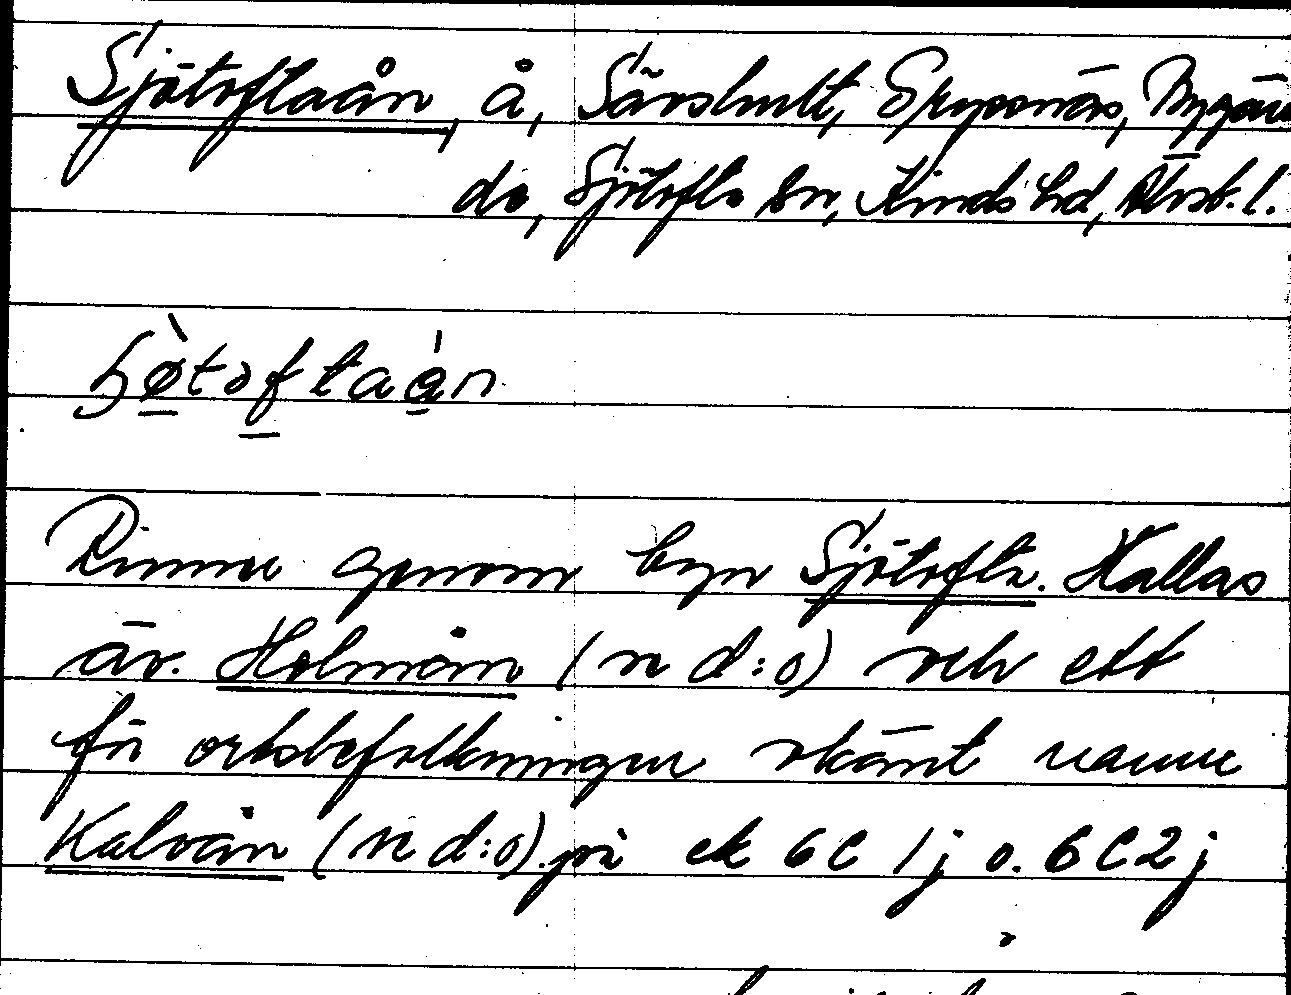 Sjötoftaån, å, Sävshult, Skypnäs, Mygän
da, Sjötofta sn, Kinds hd, Älvsb. l.
ɧø̀tɔftaán
Rinner genom byn Sjötofta. Kallas
äv. Holmån (n d:o) och ett
för ortsbefolkningen okänt namn
Kalvån (n d:o). på ek 6C 1j o. 6C2j